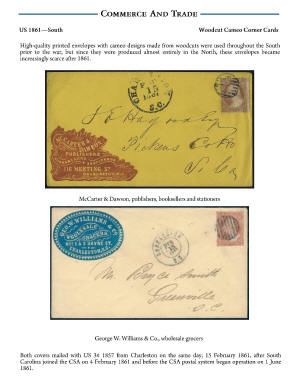 COMMERCE AND TRADE
US 1861—South Woodcut Cameo Corner Cards
High-quality printed envelopes with cameo designs made from woodcuts were used throughout the South
prior to the war, but since they were produced almost entirely in the North, these envelopes became
increasingly scarce after 1861.
CHARLESTON
S.C.
15
1861
McCARTER &
DAWSON
PUBLISHERS
116 MEETING ST
CHARLESTON, S.C.
Pickens Co Ho
So Ca
McCarter & Dawson, publishers, booksellers and stationers
GEO. W. WILLIAMS & CO
WHOLESALE
GROCERS
HAYNE ST.
CHARLESTON, S.C.
Mr Bryce Smith
Greenville
S.C.
George W. Williams & Co., wholesale grocers
Both covers mailed with US 3¢ 1857 from Charleston on the same day, 15 February 1861, after South
Carolina joined the CSA on 4 February 1861 and before the CSA postal system began operation on 1 June
1861.